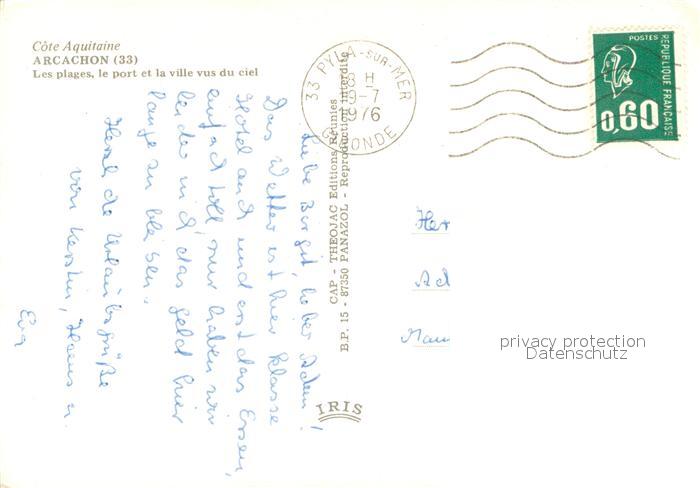 Côte Aquitaine
ARCACHON (33)
Les plages, le port et la ville vus du ciel
33 PYLA-SUR-MER
8 H
9-7
1976
GIRONDE
POSTES
REPUBLIQUE FRANÇAISE
0,60
CAP - THEOJAC Editions Réunies
B.P. 15 - 87350 PANAZOL - Reproduction interdite
IRIS
Liebe Birgit, lieber Adam!
Das Wetter ist hier klasse
Hotel auch und erst das Essen,
einfach toll, nur haben wir
leider nicht das Geld hier
lange zu bleiben.
Herzl. Urlaubsgrüße
von Kerstin, Hans u.
Eva
Her
Ad
privacy protection
Datenschutz